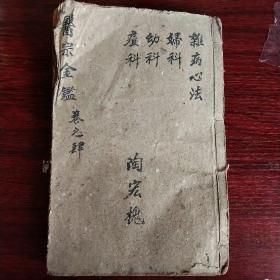 雜病心法
婦科
幼科
痘科
陶宏槐
醫宗金鑑 卷之肆